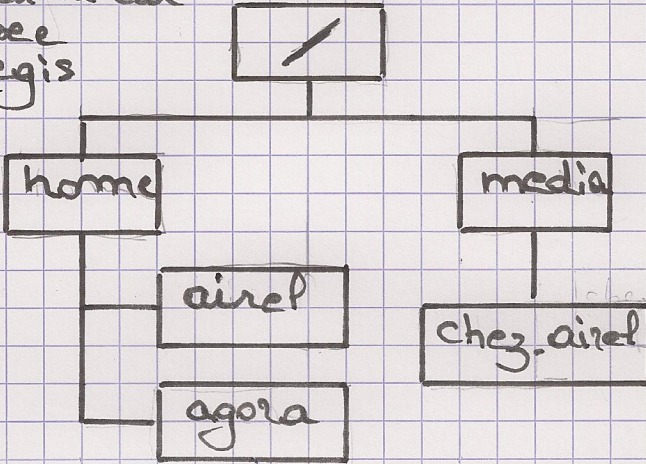 /
home
media
airel
chez_airel
agora